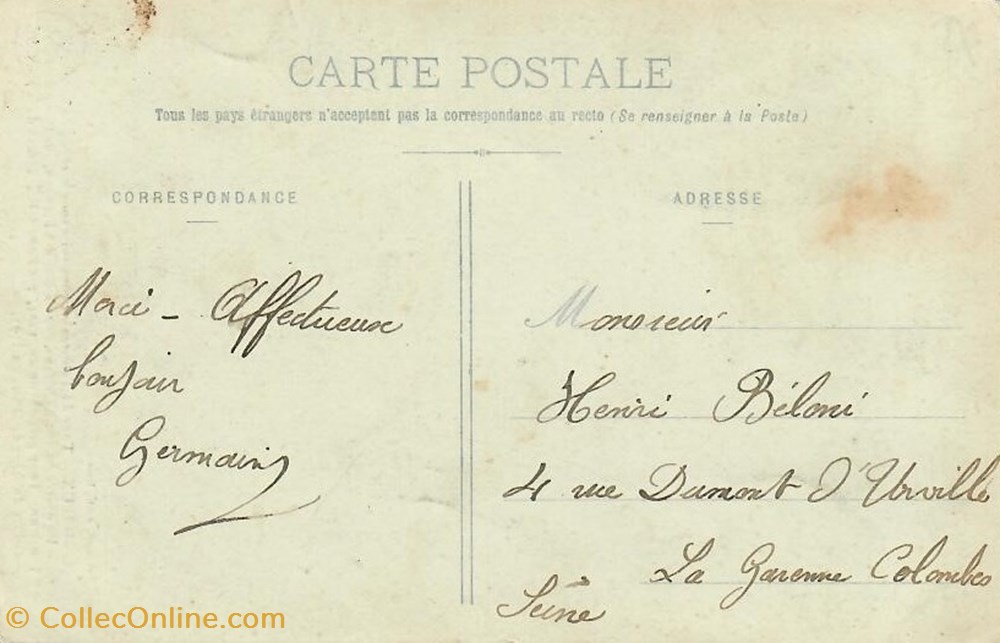 CARTE POSTALE
Tous les pays étrangers n'acceptent pas la correspondance au recto (Se renseigner à la Poste)
CORRESPONDANCE
Merci - Affectueux
bonjour
Germain
ADRESSE
Monsieur
Henri Béloni
4 rue Dumont d'Urville
La Garenne Colombes
Seine
© CollecOnline.com